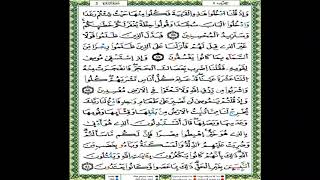 وَإِذْ قُلْنَا ادْخُلُوا هَٰذِهِ الْقَرْيَةَ فَكُلُوا مِنْهَا حَيْثُ شِئْتُمْ رَغَدًا
وَادْخُلُوا الْبَابَ سُجَّدًا وَقُولُوا حِطَّةٌ نَغْفِرْ لَكُمْ خَطَايَاكُمْ
وَسَنَزِيدُ الْمُحْسِنِينَ فَبَدَّلَ الَّذِينَ ظَلَمُوا قَوْلًا
غَيْرَ الَّذِي قِيلَ لَهُمْ فَأَنْزَلْنَا عَلَى الَّذِينَ ظَلَمُوا رِجْزًا مِنَ
السَّمَاءِ بِمَا كَانُوا يَفْسُقُونَ وَإِذِ اسْتَسْقَىٰ
مُوسَىٰ لِقَوْمِهِ فَقُلْنَا اضْرِبْ بِعَصَاكَ الْحَجَرَ فَانْفَجَرَتْ مِنْهُ
اثْنَتَا عَشْرَةَ عَيْنًا قَدْ عَلِمَ كُلُّ أُنَاسٍ مَشْرَبَهُمْ كُلُوا
وَاشْرَبُوا مِنْ رِزْقِ اللَّهِ وَلَا تَعْثَوْا فِي الْأَرْضِ مُفْسِدِينَ
وَإِذْ قُلْتُمْ يَا مُوسَىٰ لَنْ نَصْبِرَ عَلَىٰ طَعَامٍ وَاحِدٍ فَادْعُ لَنَا رَبَّكَ
يُخْرِجْ لَنَا مِمَّا تُنْبِتُ الْأَرْضُ مِنْ بَقْلِهَا وَقِثَّائِهَا وَفُومِهَا
وَعَدَسِهَا وَبَصَلِهَا قَالَ أَتَسْتَبْدِلُونَ الَّذِي هُوَ أَدْنَىٰ
بِالَّذِي هُوَ خَيْرٌ اهْبِطُوا مِصْرًا فَإِنَّ لَكُمْ مَا سَأَلْتُمْ
وَضُرِبَتْ عَلَيْهِمُ الذِّلَّةُ وَالْمَسْكَنَةُ وَبَاءُوا بِغَضَبٍ مِنَ
اللَّهِ ذَٰلِكَ بِأَنَّهُمْ كَانُوا يَكْفُرُونَ بِآيَاتِ اللَّهِ وَيَقْتُلُونَ
النَّبِيِّينَ بِغَيْرِ الْحَقِّ ذَٰلِكَ بِمَا عَصَوْا وَكَانُوا يَعْتَدُونَ